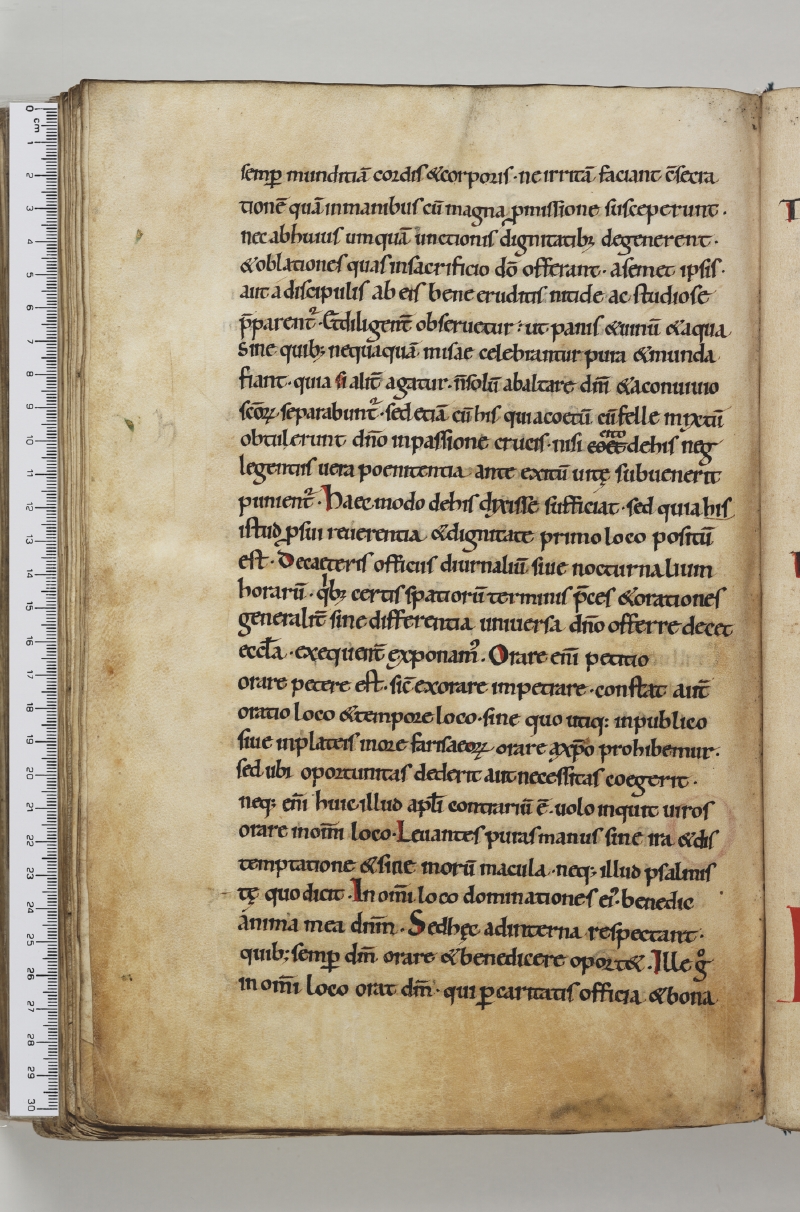 semꝑ munditiā cordis &corporis· ne irritā faciant c̄secra
tionē quā inmanibus cū magna ꝓmissione susceperunt·
nec abhuius umquā unctionis dignitatib; degenerent·
&oblationes quas insacrificio dō offerant· asemet ipsis·
aut a discipulis ab eis bene eruditis nitide ac studiose
p̄parent᷑· &diligent̄ obseruetur: ut panis &uinū &aqua
sine quib; nequaquā misae celebrantur pura &munda
fiant· quia si alit̄ agatur· n̄solū abaltare dn̄i &aconuiuio
sc̄oꝝ separabunt᷑· sed etiā cū his quiacoetū cū felle mixtū
obtulerunt dn̄o inpassione crucis· nisi dehis neg
legentiis uera poenitentia ante exitū uitę subuenerit
punient᷑· Haec modo dehis dixisse sufficiat· sed quia his
istud ꝓsui reuerentia &dignitate primo loco positū
est· Decaeteris officiis diurnaliū siue nocturnalium
horarū· qib; certis spatiorū terminis p̄ces &orationes
generalit̄ sine differentia uniuersa dn̄o offerre decet
eccła· exequent̄ exponam᷒· Orare eni petitio
orare petere est· sic̄ exorare impetrare· constat aut̄
oratio loco &tempore loco· sine quo utiq: inpublico
siue inplateis more farisaeoꝝ orare axp̄o prohibemur·
sed ubi oportunitas dederit aut necessitas coegerit·
neq; eni huic illud apłi contrariū ē· uolo inquit uiros
orare inom̄i loco· Leuantes puras manus sine ira &dis
temptatione &siue morū macula· neq; illud psalmis
tę quo dicit· In om̄i loco dominationes ei᷒· benedic
anima mea dn̄m· Sedhęc adinterna respectant·
quib; semꝑ dm̄ orare &benedicere oport&· Ille gͦ
in om̄i loco orat dm̄· qui ꝑ caritatis officia &bona